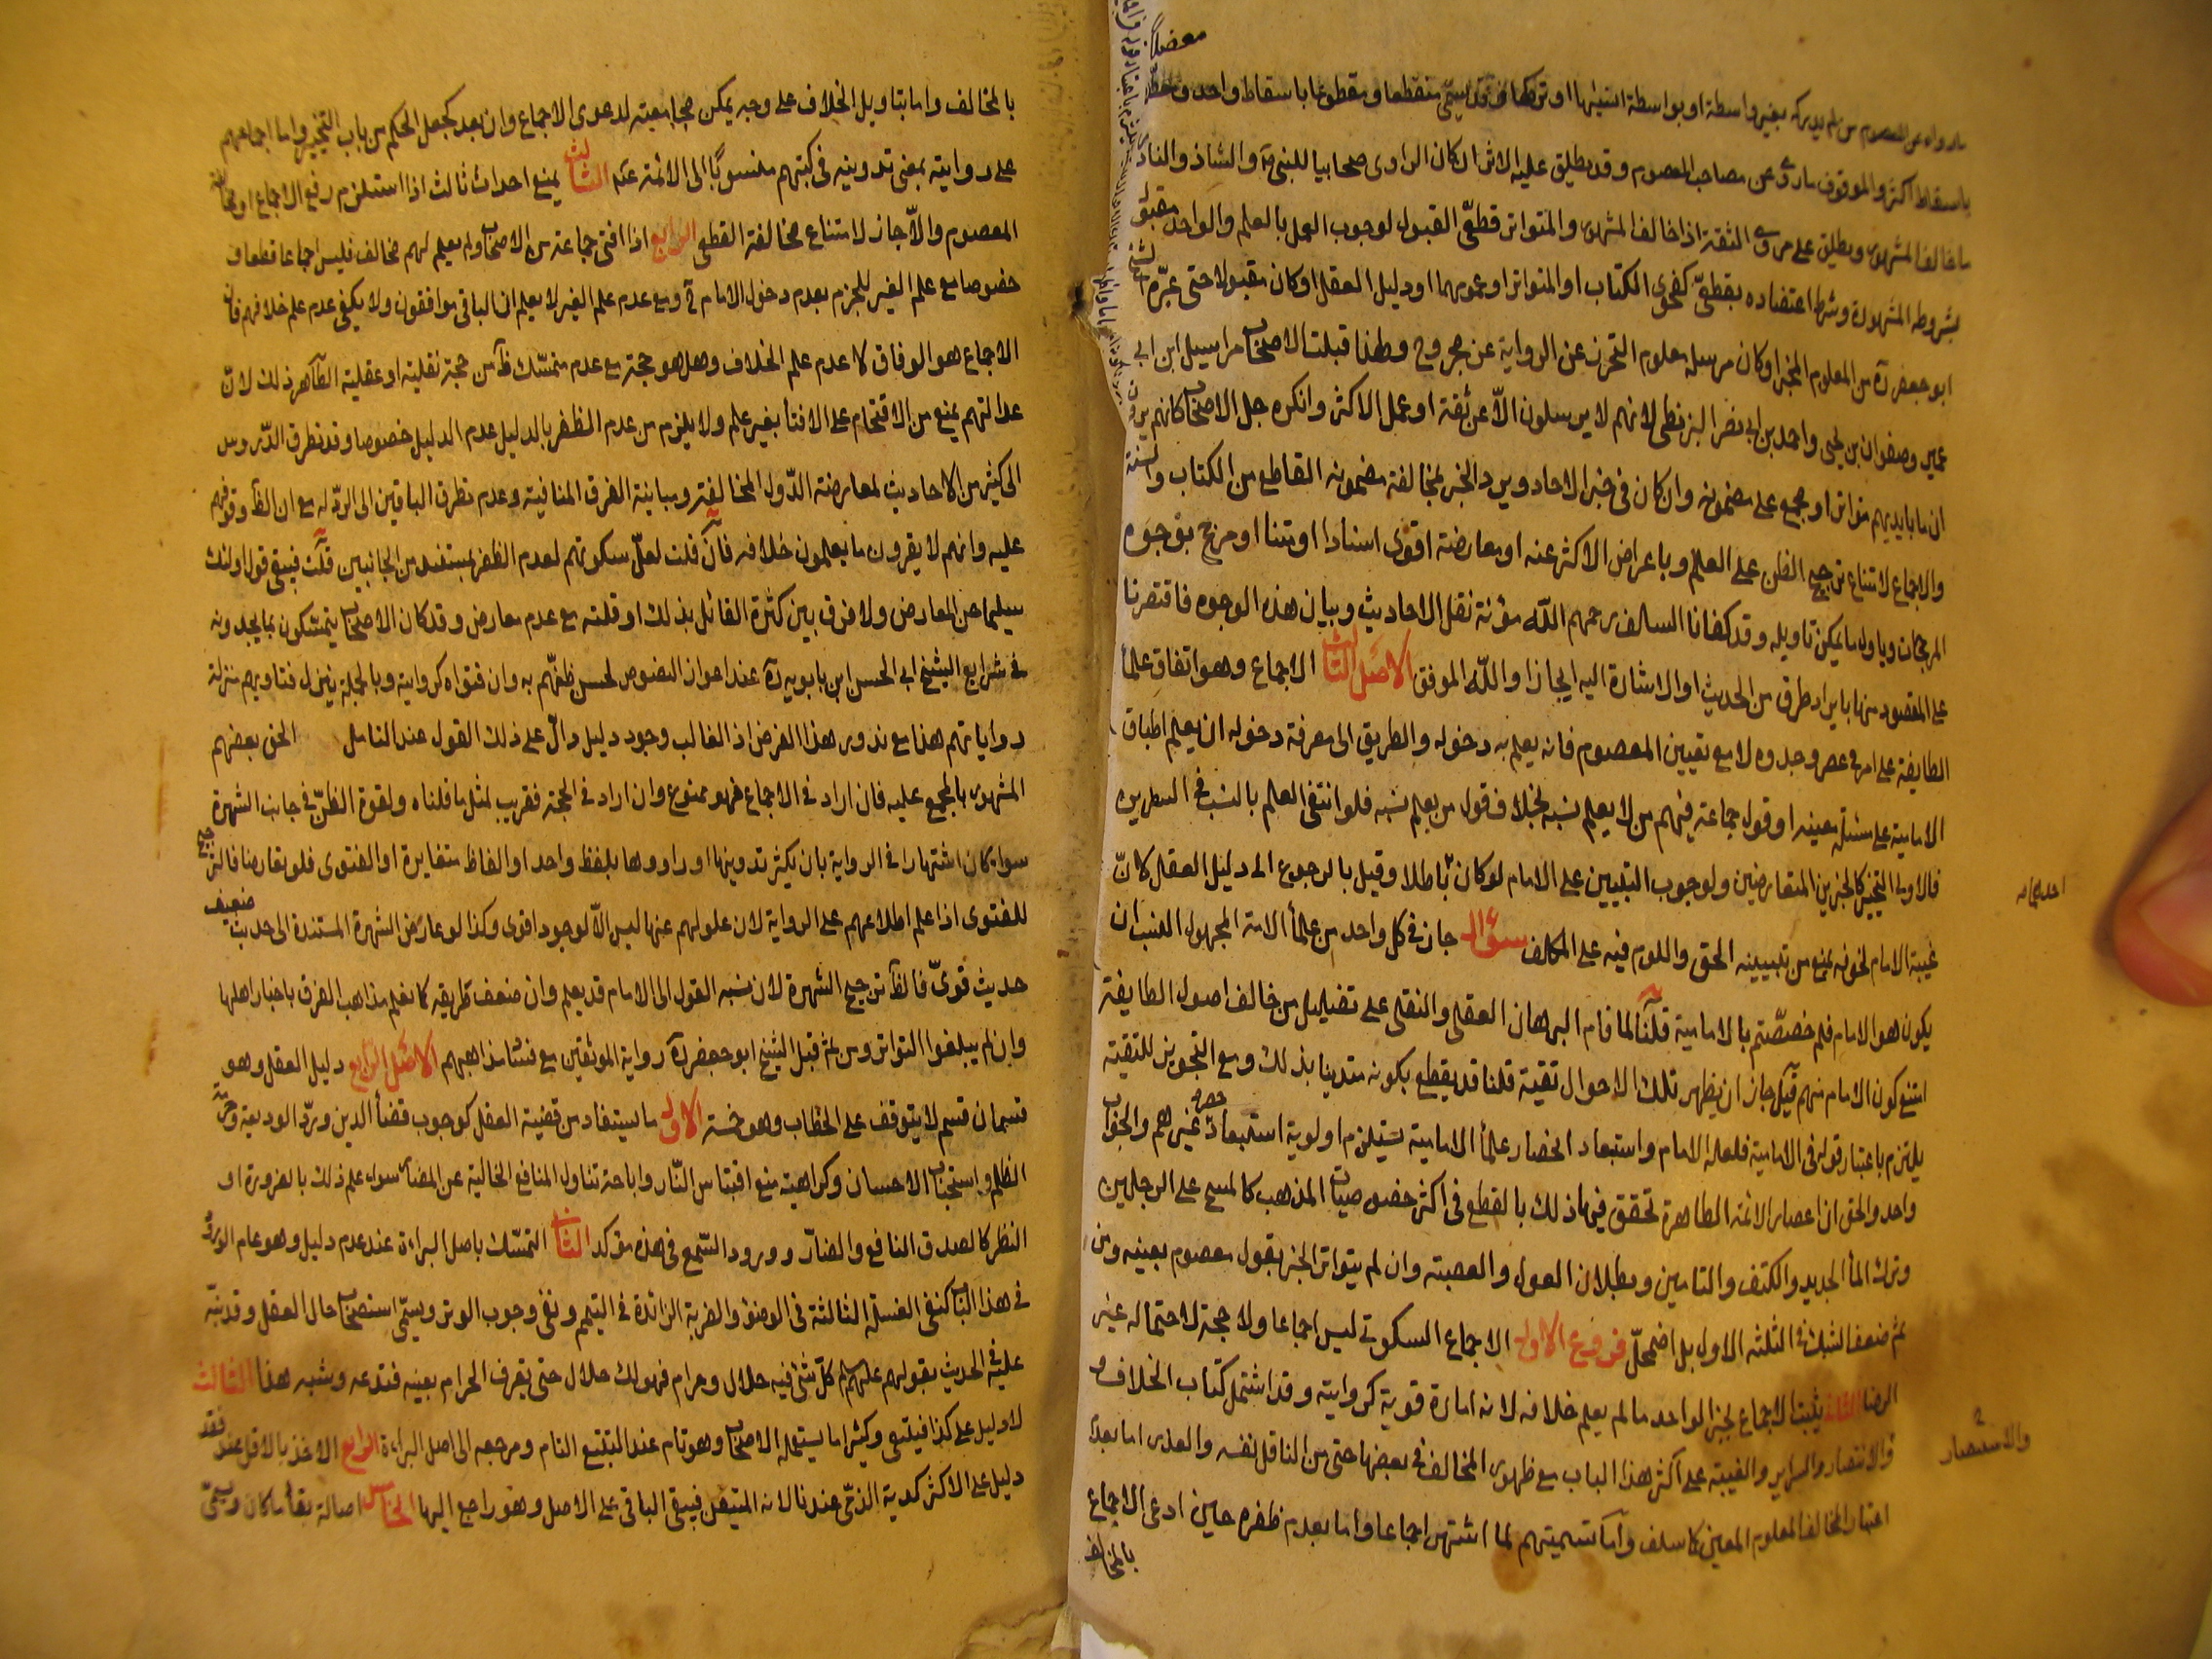 معضلاً
ما رواه عن المعصوم من لم يدركه بغير واسطة او بواسطة نسيها او تركها وقد يسمى منقطعا ومقطوعا باسقاط واحد ومعضلا
باسقاط اكثر والموقوف ما روى عن مصاحب المعصوم وقد يطلق عليه الاثر ان كان الراوى صحابيا للنبى ص والشاذ والنادر
ما خالف المشهور ويطلق على مروى الثقة اذا خالف المشهور والمتواتر قطعىّ القبول لوجوب العمل بالعلم والواحد مقبول
بشروطه المشهورة وشرط اعتضاده بقطعىّ كفحوى الكتاب او المتواتر او عمومهما او دليل العقل او كان مقبولا حتى عدّه
ابو جعفر ره من المعلوم المخبر او كان مرسله معلوم التحرز عن الرواية عن مجروح ولهذا قبلت الاصحاب مراسيل ابن ابى
عمير وصفوان بن يحيى واحمد بن ابى نصر البزنطى لانهم لا يرسلون الاّ عن ثقة او عمل الاكثر وانكره جل الاصحاب كانهم يرون
ان ما بايديهم متواتر او مجمع على مضمونه وان كان فى خبر الاحاد ويرد الخبر لمخالفة مضمونه القاطع من الكتاب والسنة
والاجماع لامتناع ترجيح الظن على العلم وباعراض الاكثر عنه او معارضة اقوى اسنادا او متنا او مرجح بوجوه
المرجحات وياول ما يمكن تاويله وقد كفانا السالف رحمهم الله مؤنة نقل الاحاديث وبيان هذه الوجوه فاقتصرنا
على المقصود منها بايراد طرق من الحديث او الاشارة اليه ايجازا والله الموفق الاصل الثالث الاجماع وهو اتفاق علماء
الطايفة على امر فى عصر وحده لا مع تعيين المعصوم فانه يعلم به دخوله والطريق الى معرفة دخوله ان يعلم اطباق
الامامية على مسئلة معينة او قول جماعة فيهم من لا يعلم نسبه بخلاف قول من يعلم نسبه فلو انتفى العلم بالنسب فى الشطرين
فالاولى التخيير كالخبرين المتعارضين ولوجوب التبيين على الامام لو كان باطلا وقيل بالرجوع الى دليل العقل لانّ
غيبة الامام لخوفه يمنع من تبيينه الحق واللوم فيه على المكلف سؤال جاز فى كل واحد من علماء الامة المجهول النسب ان
يكون هو الامام فلم خصصتم بالامامية قلنا لما قام البرهان العقلى والنقلى على تضليل من خالف اصول الطايفة
امتنع كون الامام منهم قيل جاز ان يظهر تلك الاحوال تقية قلنا قد يقطع بكونه متدينا بذلك ومع التجويز للتقية
يلتزم باعتبار قوله فى الامامية فلعله الامام واستبعاد انحصار علماء الامامية يستلزم اولوية استبعاد حصر غيرهم والجواب
واحد والحق ان اعصار الائمة الطاهرة تحقق فيها ذلك بالقطع فى اكثر خصوصيات المذهب كالمسح على الرجلين
وترك الماء الجديد والكتف والتامين وبطلان العول والعصبة وان لم يتواتر الخبر بقول معصوم بعينه ومن
ثم ضعف الشك فى الثلثة الاول بل اضمحلّ فروع الاول الاجماع السكوتى ليس اجماعا ولا حجة لاحتماله غير
الرضا الثانى يثبت الاجماع بخبر الواحد ما لم يعلم خلافه لانه امارة قوية كروايته وقد اشتمل كتاب الخلاف و
الانتصار والسراير والغنية على اكثر هذا الباب مع ظهور المخالف فى بعضها حتى من الناقل نفسه والعذر اما بعدم
اعتبار المخالف المعلوم المعين كما سلف واما تسميتهم لما اشتهر اجماعا واما بعدم ظفره حين ادعى الاجماع
بالمخالف
والاستبصار
بالمخالف واما بتاويل الخلاف على وجه يمكن مجامعته لدعوى الاجماع وان بعد كجعل الحكم من باب التخيير واما اجماعهم
على روايته بمعنى تدوينه فى كتبهم منسوبًا الى الائمة ع الثالث يمنع احداث ثالث اذا استلزم رفع الاجماع او مخالفة
المعصوم والاّ جاز لامتناع مخالفة القطعى الرابع اذا افتى جماعة من الاصحاب ولم يعلم لهم مخالف فليس اجماعا قطعا و
خصوصا مع علم الغير للجزم بعدم دخول الامام ع ومع عدم علم الغير لا يعلم ان الباقى موافقون ولا يكفى عدم علم خلافهم فان
الاجماع هو الوفاق لا عدم علم الخلاف وهل هو حجة مع عدم متمسّك ظاهر من حجة نقلية او عقلية الظاهر ذلك لانّ
عدالتهم يمنع من الاقتحام على الافتاء بغير علم ولا يلزم من عدم الظفر بالدليل عدم الدليل خصوصا وقد تطرق الدروس
الى كثير من الاحاديث لمعارضة الدول المخالفة ومباينة الفرق المنافية وعدم تطرق الباقين الى الردّ له مع ان الظاهر وقوفهم
عليه وانهم لا يقرون ما يعلمون خلافه فان قلت لعلّ سكوتهم لعدم الظفر بمستند من الجانبين قلت فيبقى قول اولئك
سليما عن المعارض ولا فرق بين كثرة القائل بذلك او قلته مع عدم معارض وقد كان الاصحاب يتمسكون بما يجدونه
فى شرايع الشيخ ابى الحسن ابن بابويه ره عند اعواز النصوص لحسن ظنّهم به وان فتواه كروايته وبالجملة ينزل فتاويهم منزلة
رواياتهم هذا مع ندور هذا الفرض اذ الغالب وجود دليل دالّ على ذلك القول عند التامل الحق بعضهم
المشهور بالمجمع عليه فان اراد فى الاجماع فهو ممنوع وان اراد فى الحجة فقريب لمثل ما قلناه ولقوة الظنّ فى جانب الشهرة
سواء كان اشتهارا فى الرواية بان يكثر تدوينها او راووها بلفظ واحد او الفاظ متغايرة او الفتوى فلو تعارضا فالترجيح
للفتوى اذا علم اطلاعهم على الرواية لان عدولهم عنها ليس الاّ لوجود اقوى وكذا لو عارض الشهرة المستندة الى حديث ضعيف
حديث قوىّ فالظاهر ترجيح الشهرة لان نسبة القول الى الامام قد يعلم وان ضعف طريقه كما نعلم مذاهب الفرق باخبار اهلها
وان لم يبلغوا التواتر ومن ثم قبل الشيخ ابو جعفر ره رواية الموثقين مع فساد مذاهبهم الاصل الرابع دليل العقل وهو
قسمان قسم لا يتوقف على الخطاب وهو خمسة الاول ما يستفاد من قضية العقل كوجوب قضاء الدين وردّ الوديعة وحرمة
الظلم واستحباب الاحسان وكراهية منع اقتباس النّار واباحة تناول المنافع الخالية عن المضار سواء علم ذلك بالضرورة او
النظر كالصدق النافع والضارّ وورود السّمع فى هذه مؤكد الثانى التمسّك باصل البراءة عند عدم دليل وهو عام الورود
فى هذا الباب كنفى الغسلة الثالثة فى الوضوء والضربة الزائدة فى التيمم ونفى وجوب الوتر ويسمّى استصحاب حال العقل وقد نبّه
عليه فى الحديث بقولهم عليهم السلام كلّ شئ فيه حلال وحرام فهو لك حلال حتى يعرف الحرام بعينه فتدعه وشبه هذا الثالث
لا دليل على كذا فينتفى وكثيرا ما يستعمله الاصحاب وهو تام عند التتبع التام ومرجعه الى اصل البراءة الرابع الاخذ بالاقل عند فقد
دليل على الاكثر كدية الذمّى عندنا لانه المتيقن فيبقى الباقى على الاصل وهو راجع اليها الخامس اصالة بقاء ما كان ويسمّى